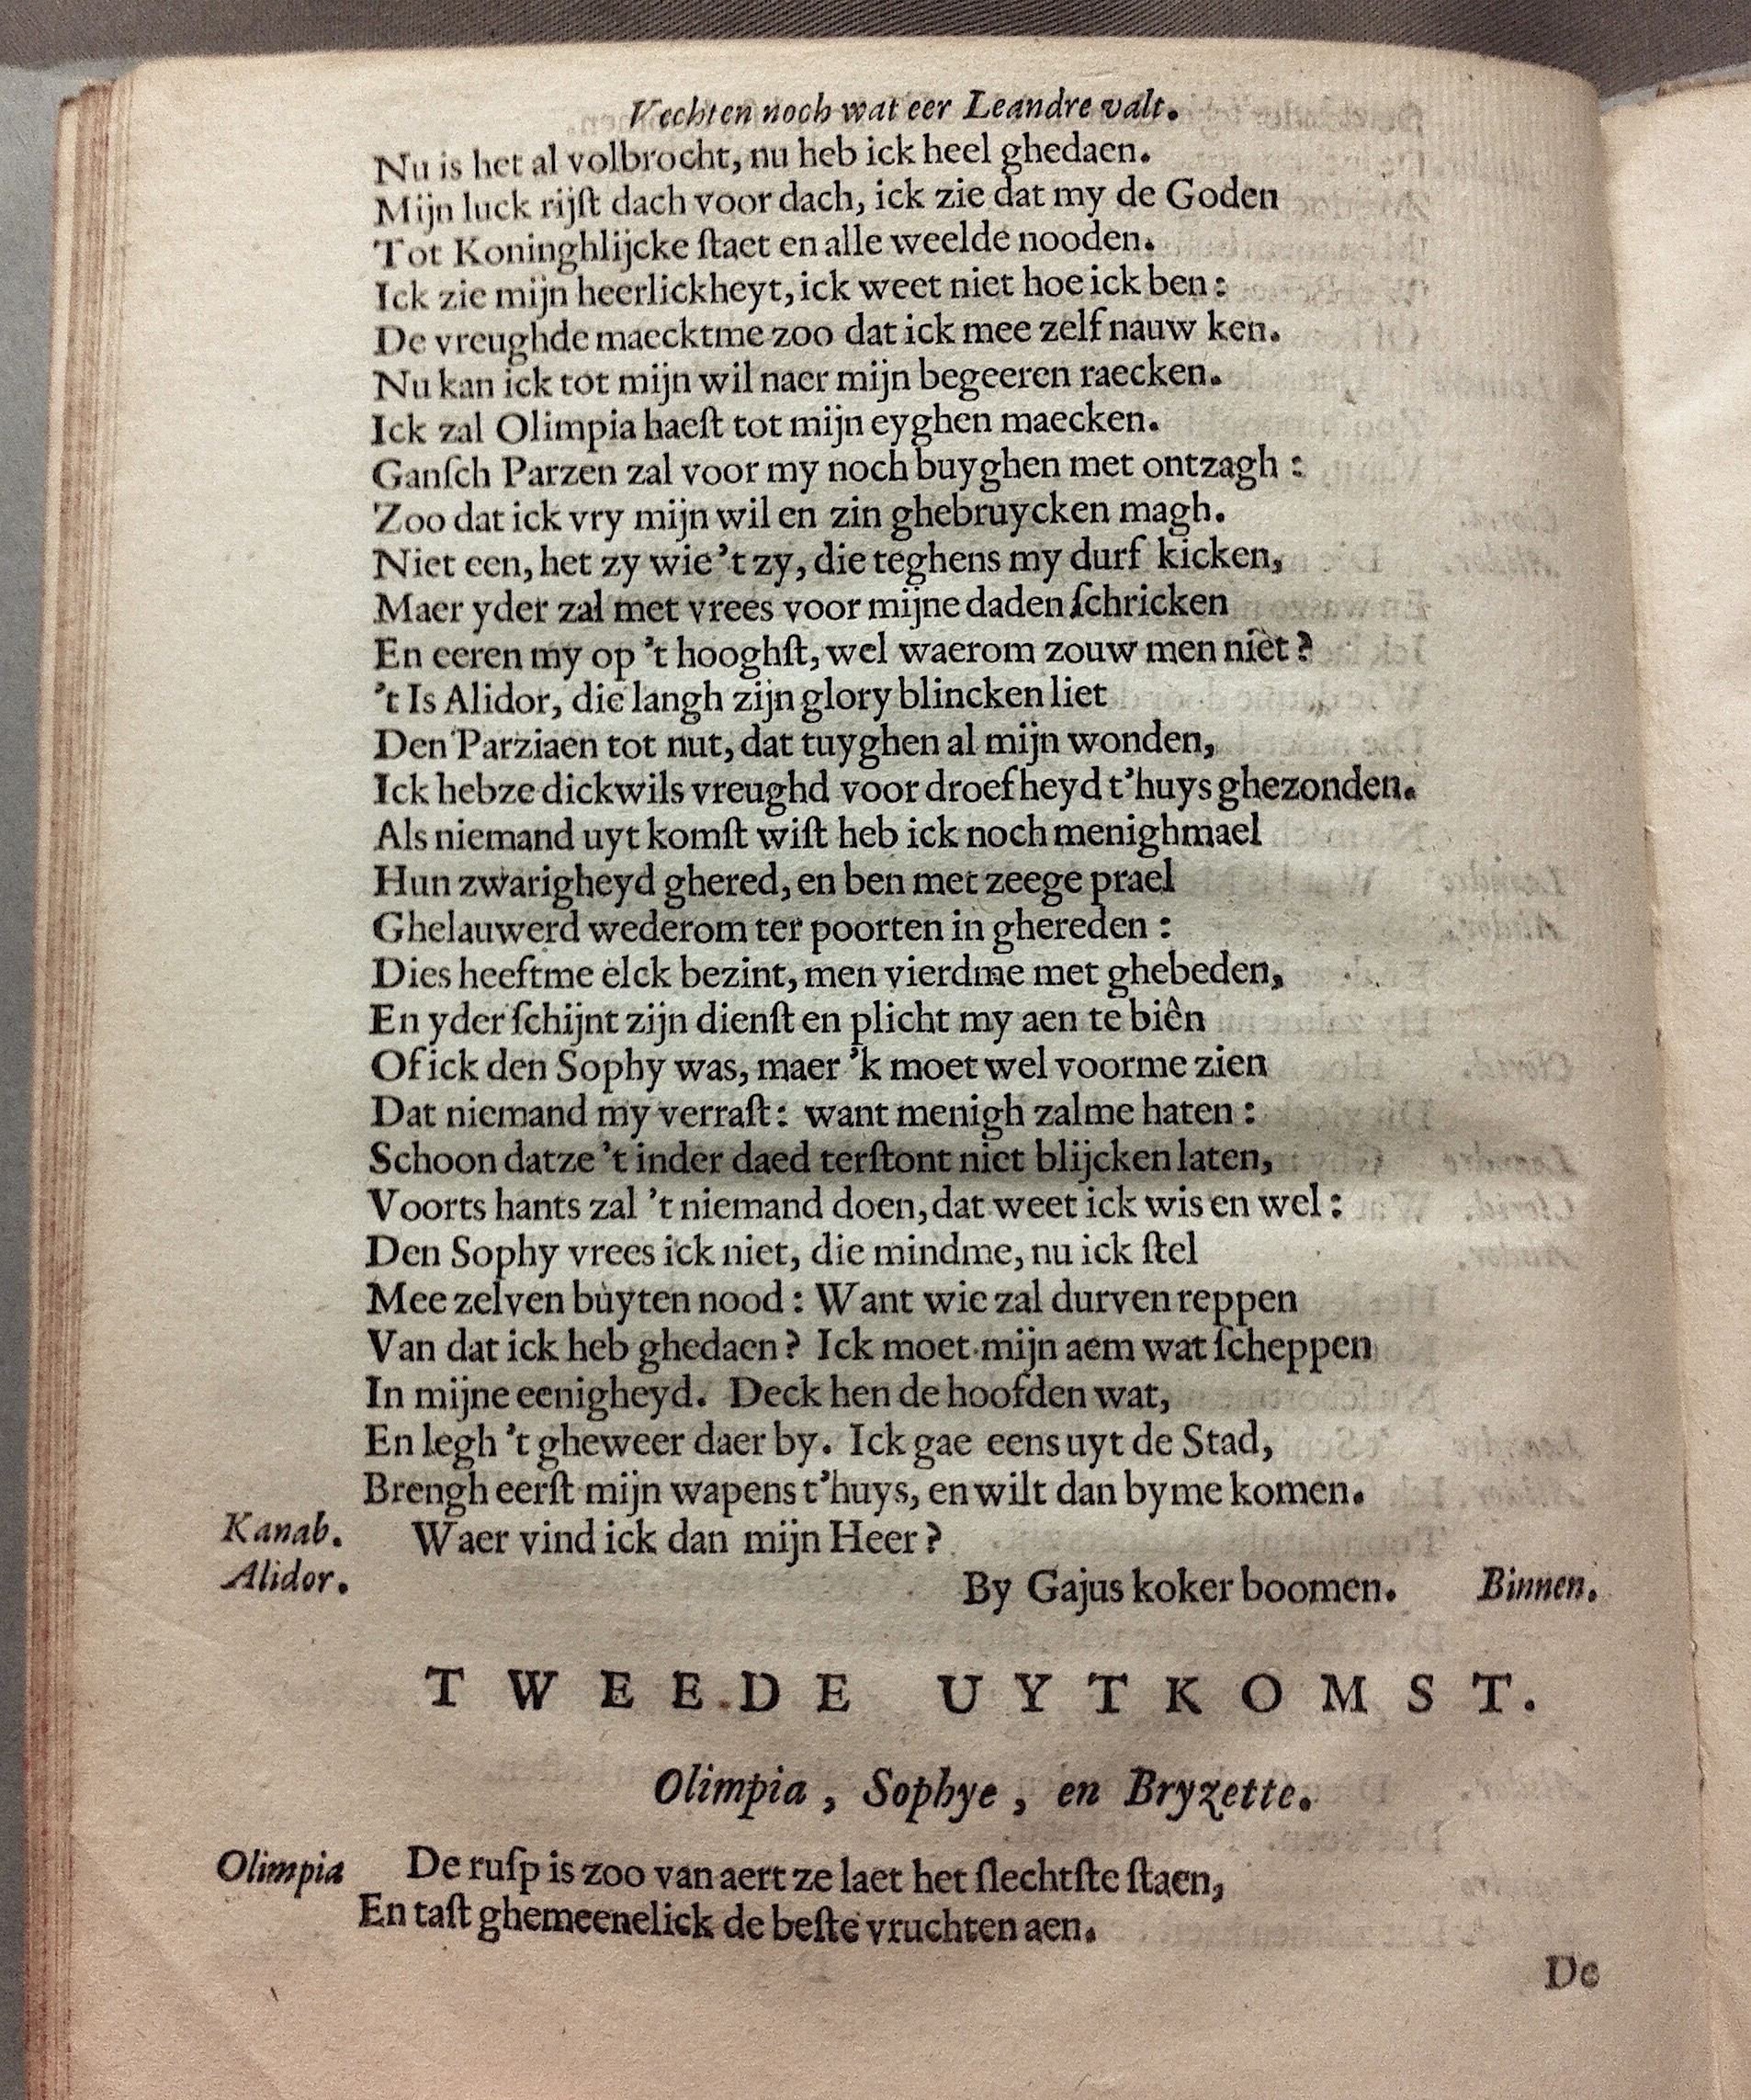 Vechten noch wat eer Leandre valt.
Nu is het al volbrocht, nu heb ick heel ghedaen.
Mijn luck rijſt dach voor dach, ick zie dat my de Goden
Tot Koninghlijcke ſtaet en alle weelde nooden.
Ick zie mijn heerlickheyt, ick weet niet hoe ick ben:
De vreughde maecktme zoo dat ick mee zelf nauw ken.
Nu kan ick tot mijn wil naer mijn begeeren raecken.
Ick zal Olimpia haeſt tot mijn eyghen maecken.
Ganſch Parzen zal voor my noch buyghen met ontzagh:
Zoo dat ick vry mijn wil en zin ghebruycken magh.
Niet een, het zy wie 't zy, die teghens my durf kicken,
Maer yder zal met vrees voor mijne daden ſchricken
En eeren my op 't hooghſt, wel waerom zouw men niet?
't Is Alidor, die langh zijn glory blincken liet
Den Parziaen tot nut, dat tuyghen al mijn wonden,
Ick hebze dickwils vreughd voor droefheyd t'huys ghezonden.
Als niemand uyt komſt wiſt heb ick noch menighmael
Hun zwarigheyd ghered, en ben met zeege prael
Ghelauwerd wederom ter poorten in ghereden:
Dies heeftme elck bezint, men vierdme met ghebeden,
En yder ſchijnt zijn dienſt en plicht my aen te biên
Of ick den Sophy was, maer 'k moet wel voorme zien
Dat niemand my verraſt: want menigh zalme haten:
Schoon datze 't inder daed terſtont niet blijcken laten,
Voorts hants zal 't niemand doen, dat weet ick wis en wel:
Den Sophy vrees ick niet, die mindme, nu ick ſtel
Mee zelven buyten nood: Want wie zal durven reppen
Van dat ick heb ghedaen? Ick moet mijn aem wat ſcheppen
In mijne eenigheyd. Deck hen de hoofden wat,
En legh 't gheweer daer by. Ick gae eens uyt de Stad,
Brengh eerſt mijn wapens t'huys, en wilt dan byme komen.
Kanab. Waer vind ick dan mijn Heer?
Alidor. By Gajus koker boomen. Binnen.
TWEEDE UYTKOMST.
Olimpia, Sophye, en Bryzette.
Olimpia De ruſp is zoo van aert ze laet het ſlechtſte ſtaen,
En taſt ghemeenelick de beſte vruchten aen.
De